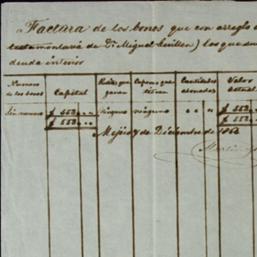 Factura de los bonos que con arreglo
testamentaria de Dn Miguel
deuda interior
Numero de los bonos
Capital
Redito que ganan
Cupones que tienen
Cantidades abonadas
Valor actual
Sin numero $ 552 " " ninguno ninguno " " $ 552 " "
$ 552 " " $ 552 " "
Mejico 7 de Diciembre de 1862